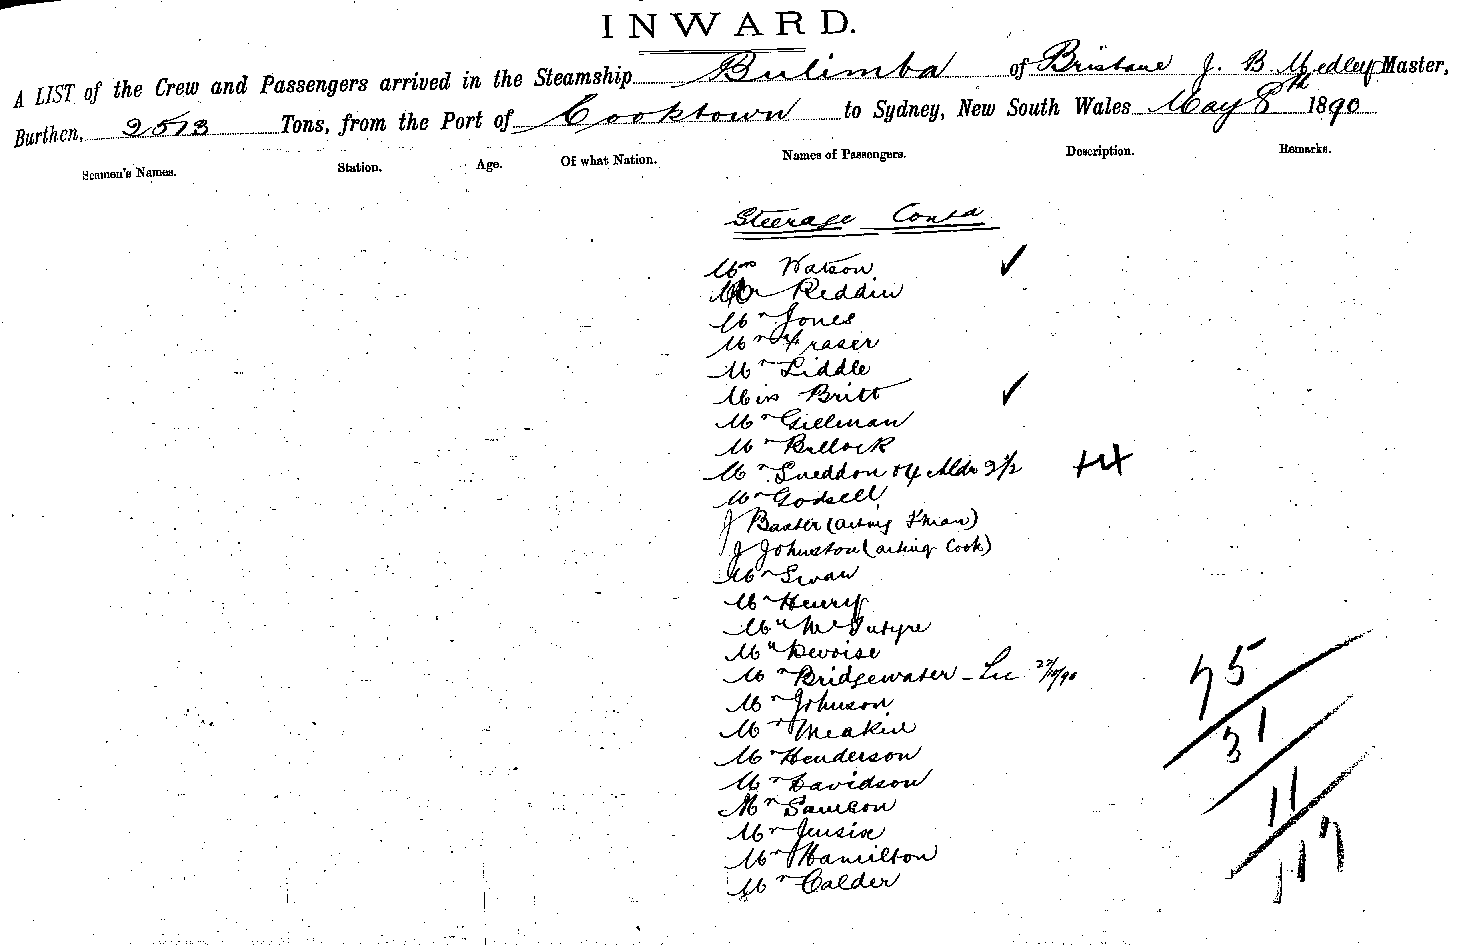 INWARD.
A LIST of the Crew and Passengers arrived in the Steamship Bulimba of Brisbane J. B. Medley Master,
Burthen, 2513 Tons, from the Port of Cooktown to Sydney, New South Wales May 8th 1890
Seamen's Names. Station. Age. Of what Nation. Names of Passengers. Description. Remarks.
Steerage Contd
Mrs Watson ✓
Mr Reddin
Mr Jones
Mr Fraser
Mr Liddle
Miss Britt ✓
Mr Gillman
Mr Bullock
Mr Sneddon 2 1/2
Mr Godsell
J Baxter (acting F'man)
J Johnston (acting Cook)
Mr Swan
Mr Henry
Mr McIntyre
Mr Devoise
Mr Bridgewater
Mr Johnson
Mr Meakin
Mr Henderson
Mr Davidson
Mr Samson
Mr Jensie
Mr Hamilton
Mr Calder
75
31
11
117